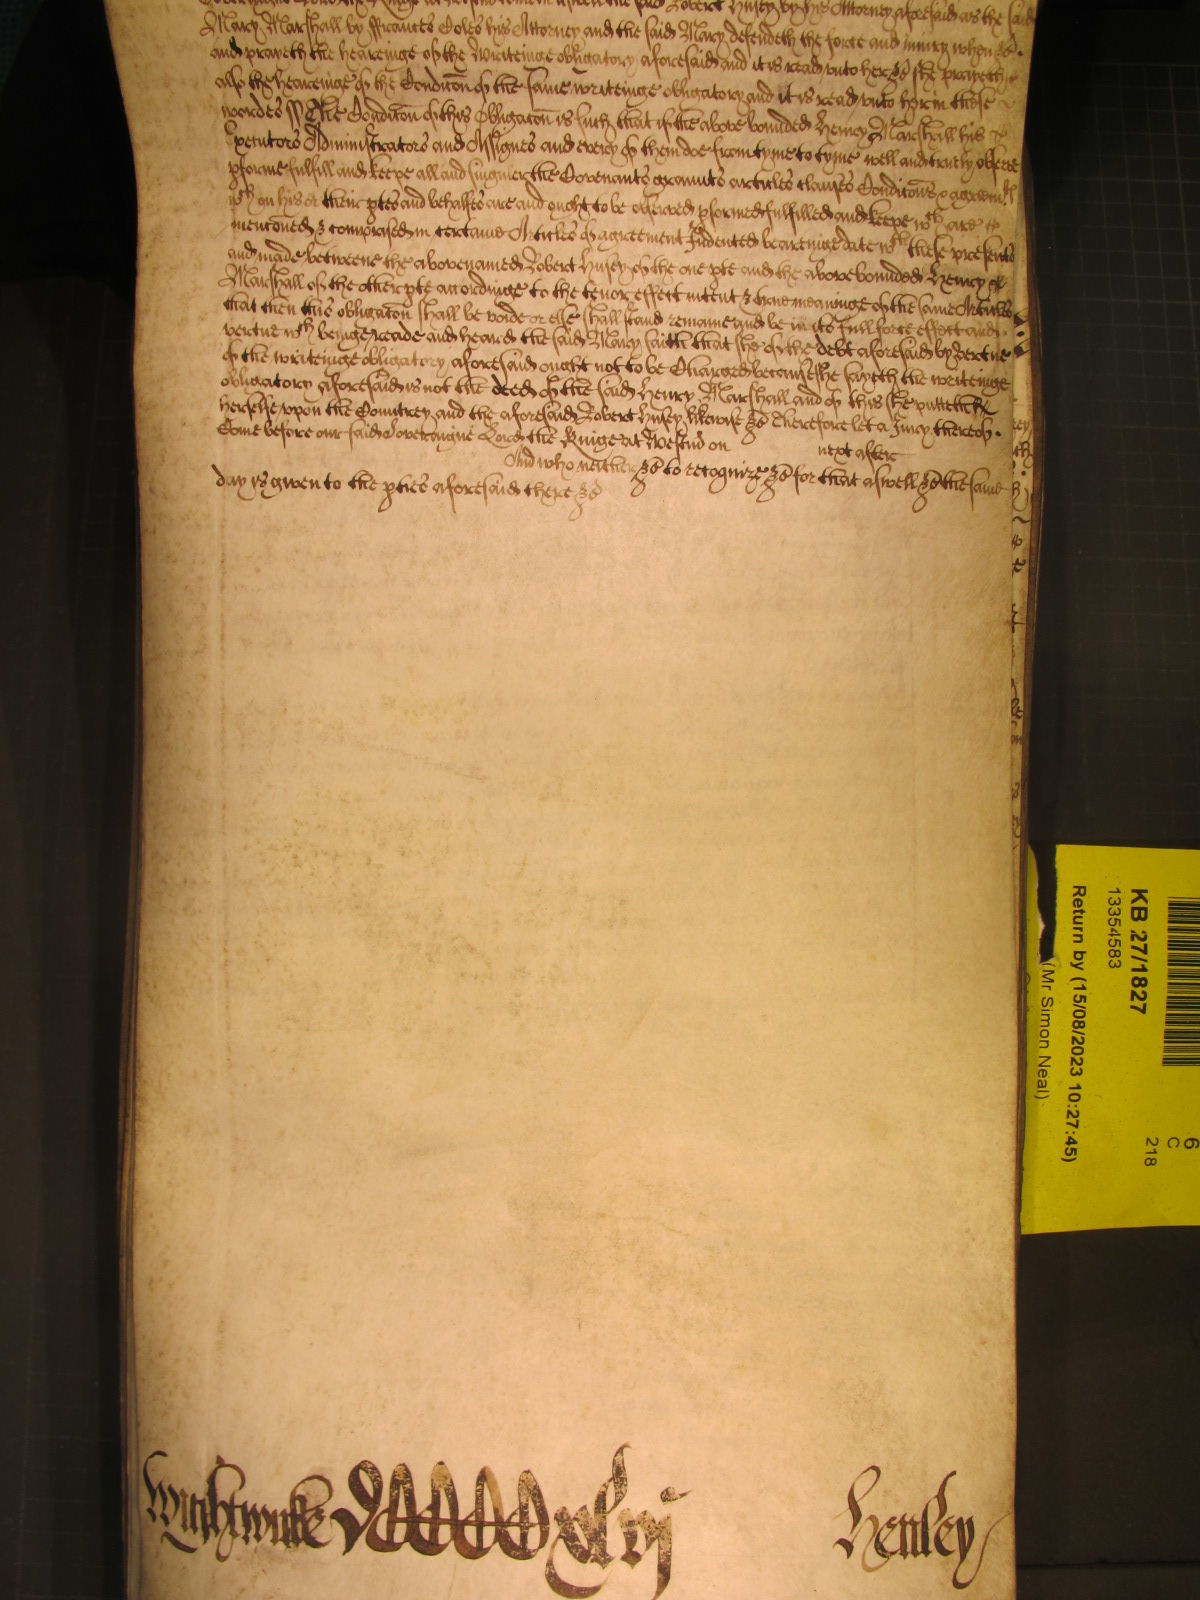 Robert Husey by his Attorney aforesaid as the said
Mary Marshall by Frances Coles his Attorney and the said Mary defendeth the force and iniury when &c
and prayeth the heareinge of the writeinge obligatory aforesaid and it is read unto her &c she prayeth
also the heareinge of the Condicōn of the same writeinge obligatory and it is read unto her in these
wordes ss The Condicōn of this Obligacōn is such that if the above bounded Henry Marshall his
Executors Administrators and Assignes and every of them doe from tyme to tyme well and truely observe
pforme fulfill and keepe all and singuler the Covenants graunts articles clauses Condicōns & agreem
wch on his or their ptes and behalfes are and ought to be observed pformed fulfilled and keepe wch are
mentioned & comprised in certaine Articles of agreement Indented beareinge date wth these presents
and made betweene the abovenamed Robert Husey of the one pte and the above bounded Henry
Marshall of the other pte accordinge to the tenor effect intent & true meaninge of the same Articles
that then this obligacōn shall be voide or else shall stand remaine and be in its full force effect and
vertue wch beinge reade and heard the said Mary saith that she of the debt aforesaid by vertue
of the writeinge obligatory aforesaid ought not to be Charged because she sayeth the writeinge
obligatory aforesaid is not the deed of the said Henry Marshall and of this she putteth
herselfe uppon the Countrey and the aforesaid Robert Husey likewise &c Therefore let a Jury thereof
Come before our said Soveraigne Lord the Kinge at Westm̄ on next after
And who neither &c to recognize &c for that aswell &c the same
day is given to the pties aforesaid there &c
Wightwicke xlvj Henley
KB 27/1827
13354583
Return by (15/08/2023 10:27:45)
(Mr Simon Neal)
6
C
218